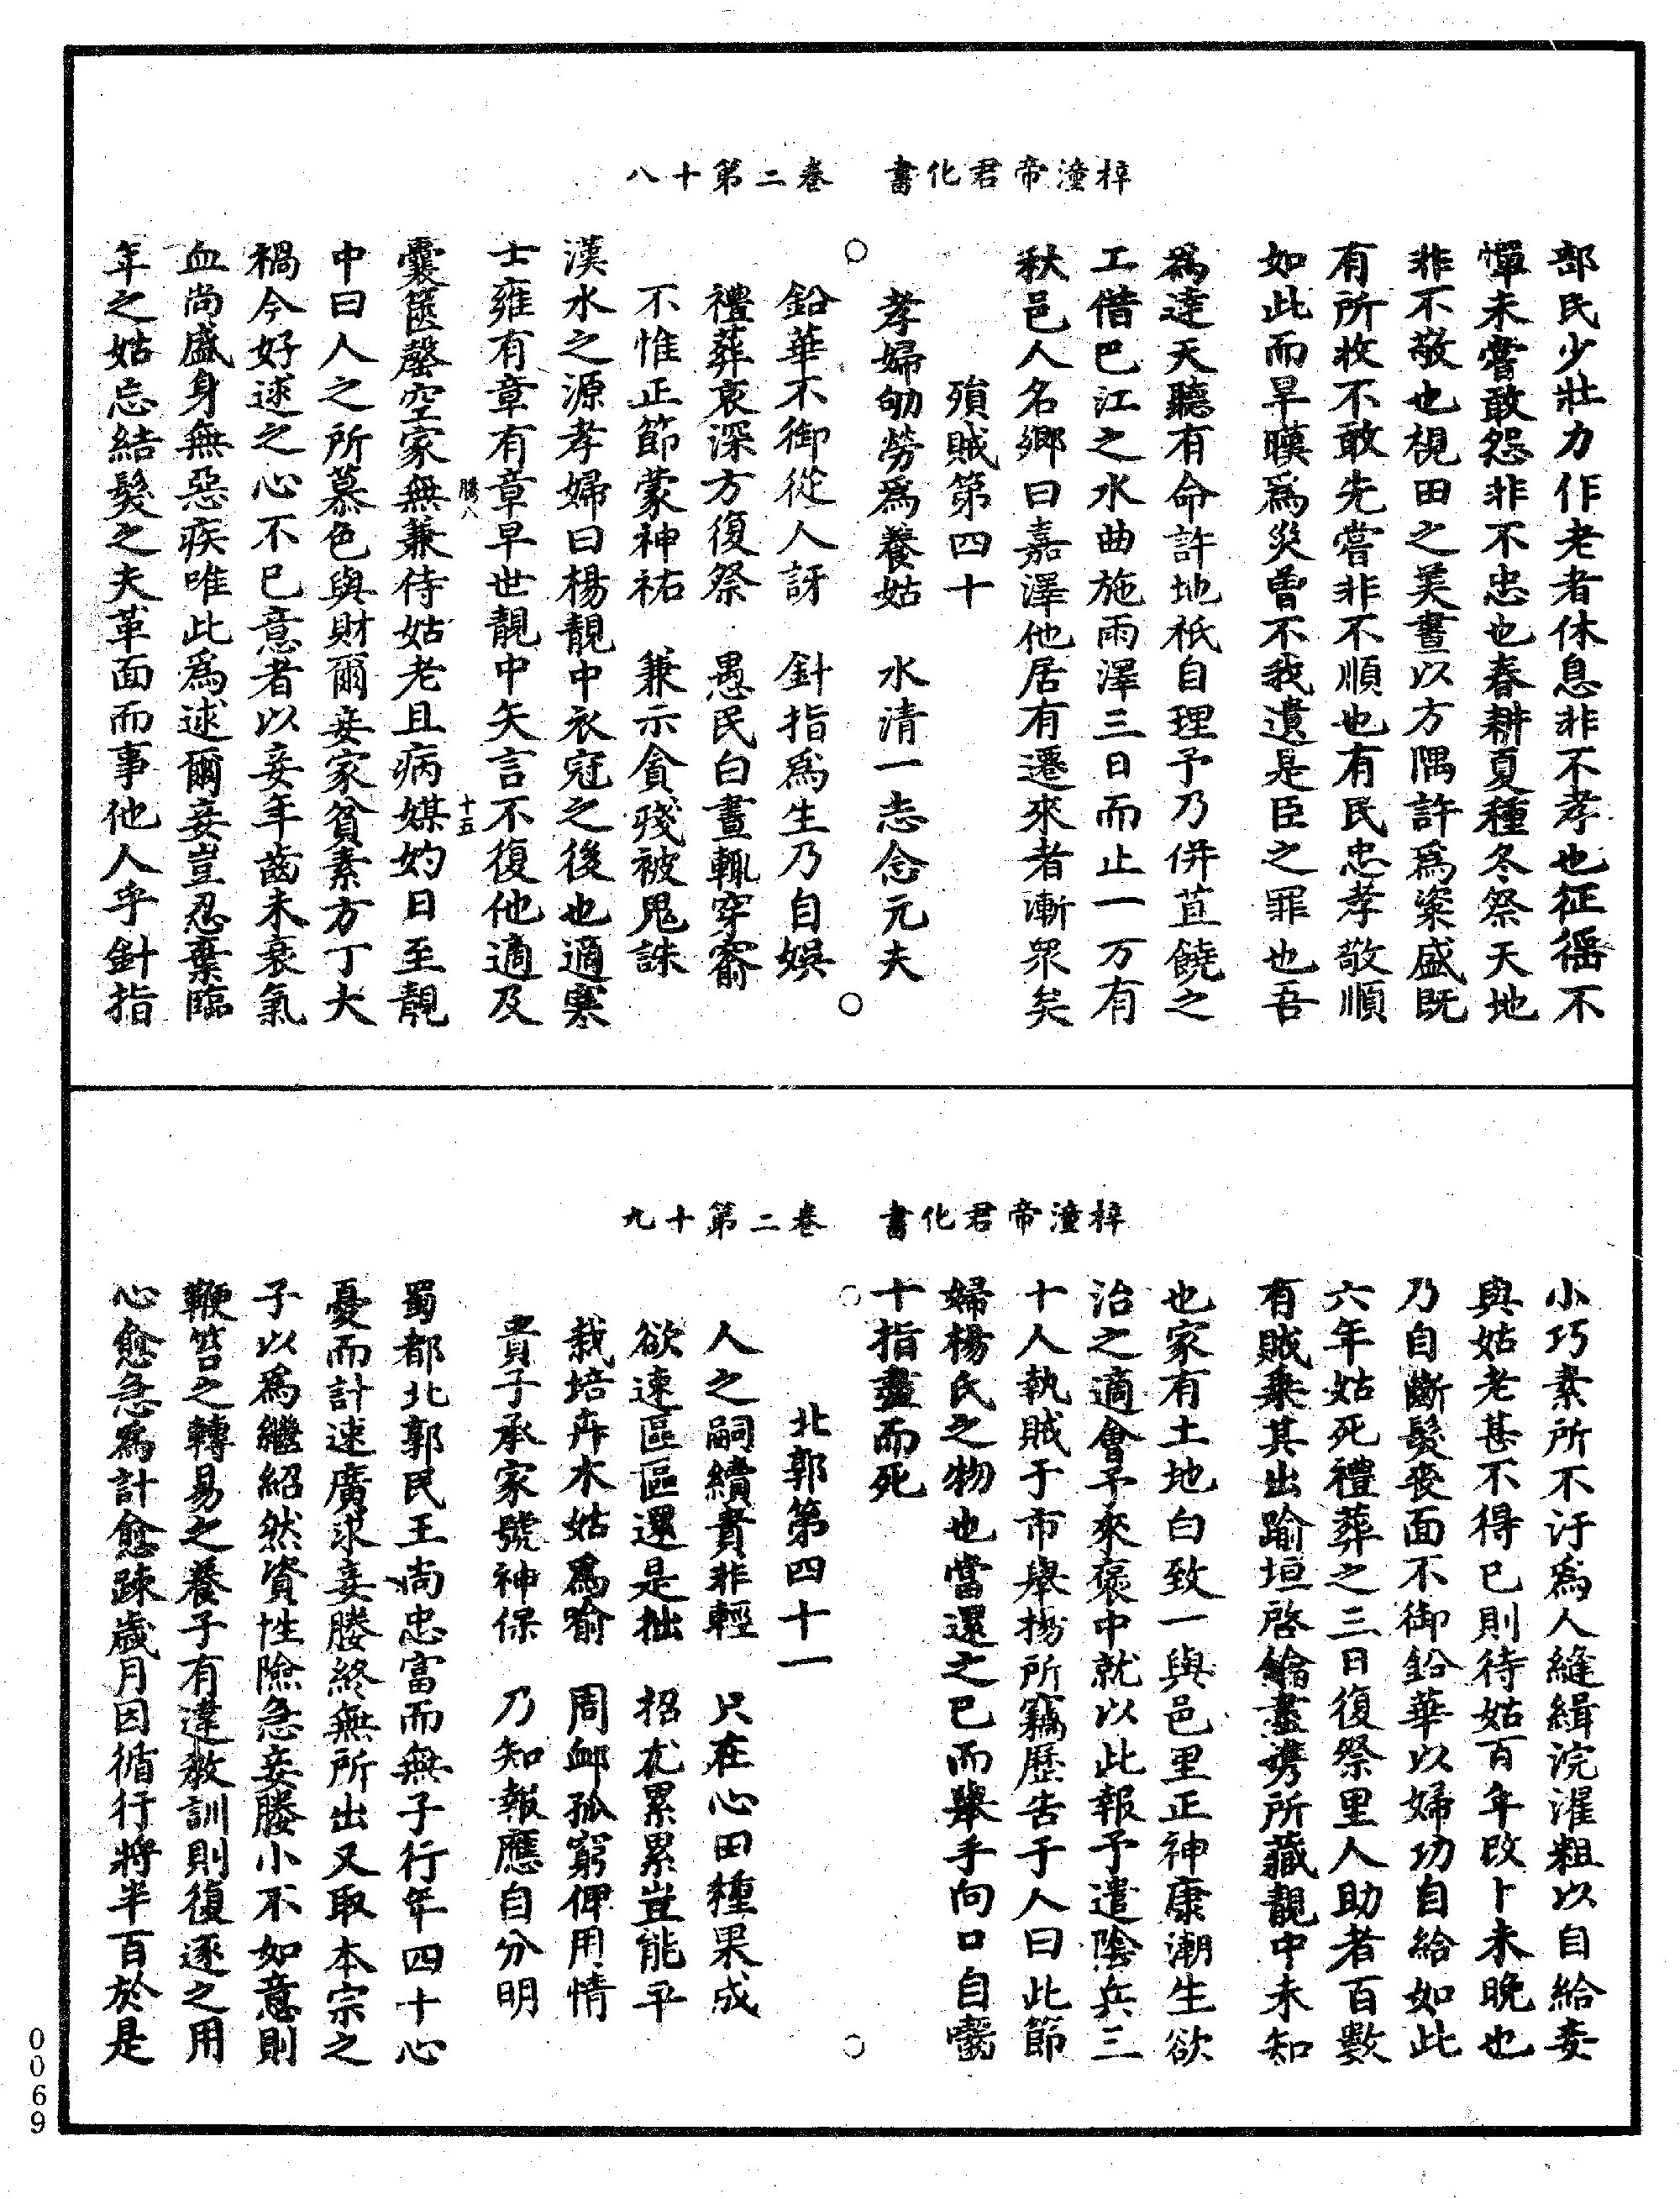 梓潼帝君化書　卷二第十八
部民少壯力作老者休息非不孝也征徭不
憚未嘗敢怨非不忠也春耕夏種冬祭天地
非不敬也視田之美晝以方隅許爲粢盛旣
有所收不敢先嘗非不順也有民忠孝敬順
如此而旱暵爲災曾不我遺是臣之罪也吾
爲達天聽有命許地祇自理予乃併苴饒之
工借巴江之水曲施雨澤三日而止一万有
秋邑人名鄉曰嘉澤他居有遷來者漸衆矣
殞賊第四十
孝婦劬勞爲養姑　水清一志念元夫
鉛華不御從人訝　針指爲生乃自娛
禮葬哀深方復祭　愚民白晝輒穿窬
不惟正節蒙神祐　兼示貪殘被鬼誅
漢水之源孝婦曰楊靚中衣冠之後也適寒
士雍有章有章早世靚中矢言不復他適及
騰八　十五
囊篋罄空家無兼侍姑老且病媒妁日至靚
中曰人之所慕色與財爾妾家貧素方丁大
禍今好逑之心不已意者以妾年齒未衰氣
血尚盛身無惡疾唯此爲逑爾妾豈忍棄臨
年之姑忘結髮之夫革面而事他人乎針指
梓潼帝君化書　卷二第十九
小巧素所不汙爲人縫緝浣濯粗以自給妾
與姑老甚不得已則待姑百年改卜未晚也
乃自斷髮喪面不御鉛華以婦功自給如此
六年姑死禮葬之三日復祭里人助者百數
有賊乘其出踰垣啓鑰盡携所藏靚中未知
也家有土地白致一與邑里正神康潮生欲
治之適會予來褒中就以此報予遣陰兵三
十人執賊于市舉揚所竊歷告于人曰此節
婦楊氏之物也當還之已而舉手向口自嚙
十指盡而死
北郭第四十一
人之嗣續責非輕　只在心田種果成
欲速區區還是拙　招尤累累豈能平
栽培卉木姑爲喻　周卹孤窮俾用情
貴子承家號神保　乃知報應自分明
蜀都北郭民王尚忠富而無子行年四十心
憂而計速廣求妾媵終無所出又取本宗之
子以爲繼紹然資性險急妾媵小不如意則
鞭笞之轉易之養子有違教訓則復逐之用
心愈急爲計愈踈歲月因循行將半百於是
0069